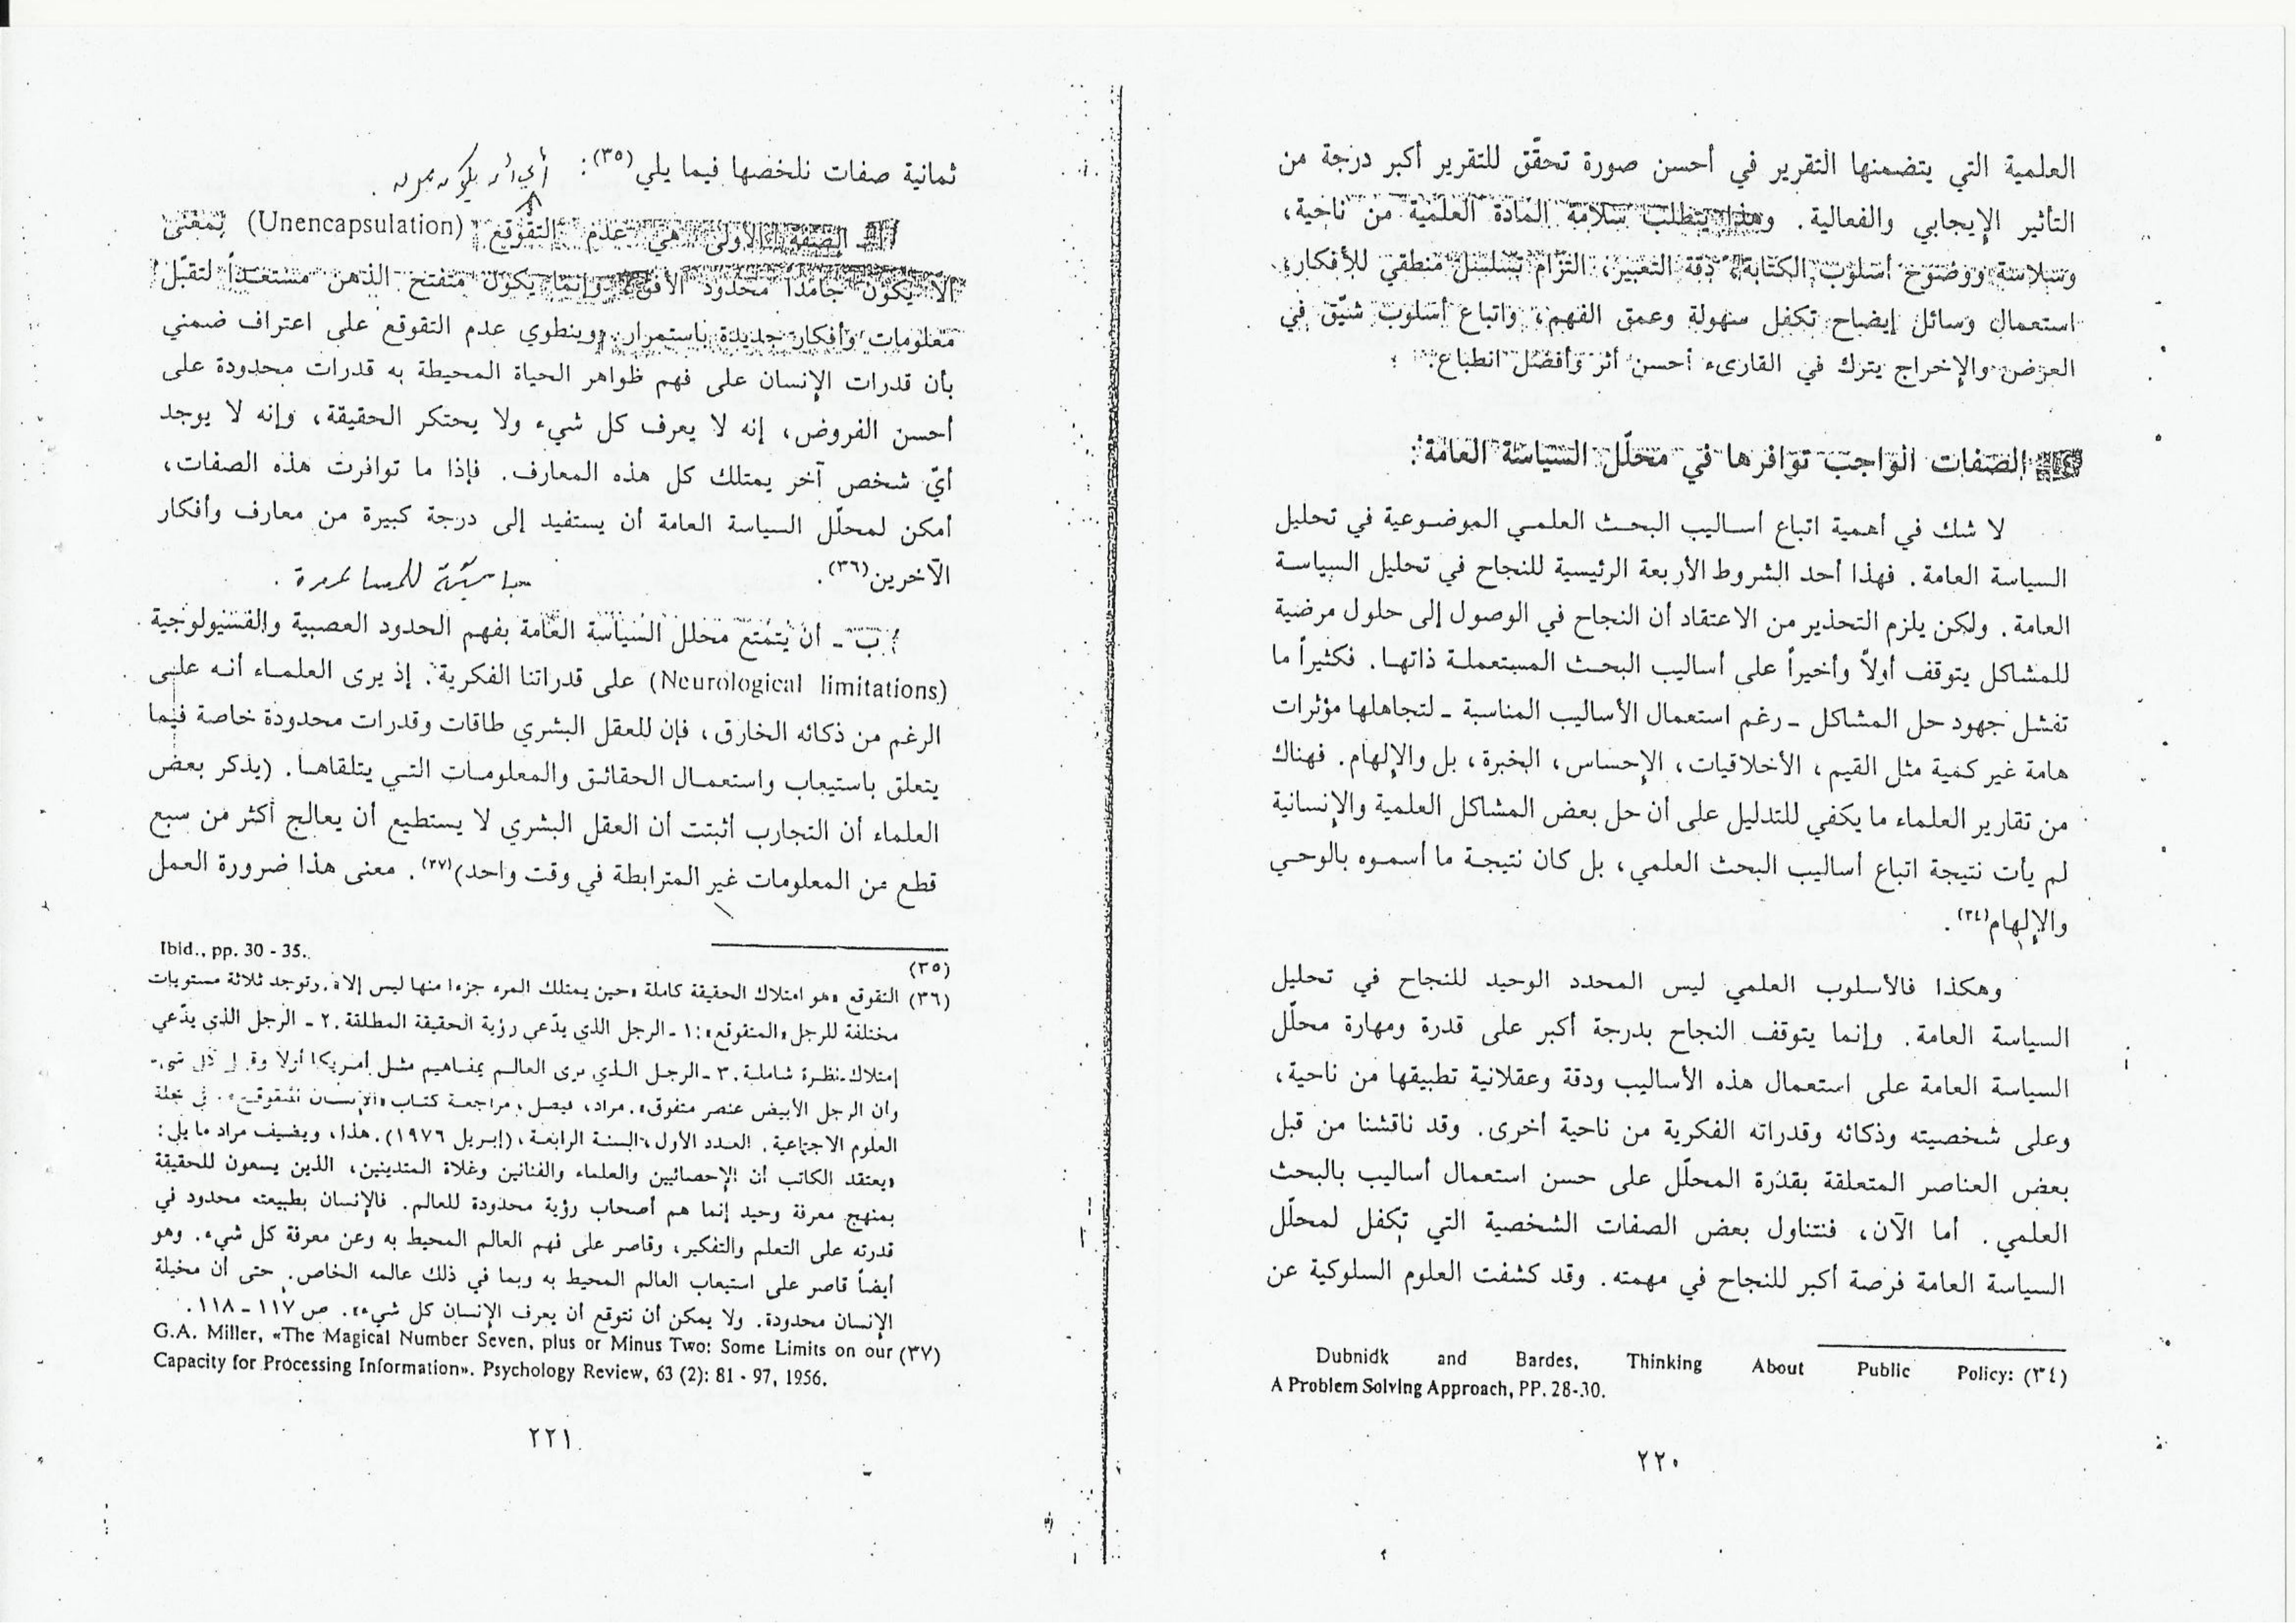 العلمية التي يتضمنها التقرير في أحسن صورة تحقّق للتقرير أكبر درجة من
التأثير الإيجابي والفعالية. وهذا يتطلب سلامة المادة العلمية من ناحية،
وسلاسة ووضوح أسلوب الكتابة، دقة التعبير، التزام تسلسل منطقي للأفكار،
استعمال وسائل إيضاح تكفل سهولة وعمق الفهم، واتباع أسلوب شيّق في
العرض والإخراج يترك في القارىء أحسن أثر وأفضل انطباع.
الصفات الواجب توافرها في محلّل السياسة العامة:
لا شك في أهمية اتباع أساليب البحث العلمي الموضوعية في تحليل
السياسة العامة. فهذا أحد الشروط الأربعة الرئيسية للنجاح في تحليل السياسة
العامة. ولكن يلزم التحذير من الاعتقاد أن النجاح في الوصول إلى حلول مرضية
للمشاكل يتوقف أولاً وأخيراً على أساليب البحث المستعملة ذاتها. فكثيراً ما
تفشل جهود حل المشاكل ـ رغم استعمال الأساليب المناسبة ـ لتجاهلها مؤثرات
هامة غير كمية مثل القيم، الأخلاقيات، الإحساس، الخبرة، بل والإلهام. فهناك
من تقارير العلماء ما يكفي للتدليل على أن حل بعض المشاكل العلمية والإنسانية
لم يأت نتيجة اتباع أساليب البحث العلمي، بل كان نتيجة ما أسموه بالوحي
والإلهام(٣٤).
وهكذا فالأسلوب العلمي ليس المحدد الوحيد للنجاح في تحليل
السياسة العامة. وإنما يتوقف النجاح بدرجة أكبر على قدرة ومهارة محلّل
السياسة العامة على استعمال هذه الأساليب ودقة وعقلانية تطبيقها من ناحية،
وعلى شخصيته وذكائه وقدراته الفكرية من ناحية أخرى. وقد ناقشنا من قبل
بعض العناصر المتعلقة بقدرة المحلّل على حسن استعمال أساليب بالبحث
العلمي. أما الآن، فنتناول بعض الصفات الشخصية التي تكفل لمحلّل
السياسة العامة فرصة أكبر للنجاح في مهمته. وقد كشفت العلوم السلوكية عن
(٣٤) Dubnidk and Bardes, Thinking About Public Policy:
A Problem Solving Approach, PP. 28-30.
٢٢٠
ثمانية صفات نلخصها فيما يلي(٣٥): أي أن يكون مرن.
أ ـ الصفة الأولى هي عدم التقوقع (Unencapsulation) بمعنى
ألّا يكون جامداً محدود الأفق، وإنما يكون متفتح الذهن مستعداً لتقبّل
معلومات وأفكار جديدة باستمرار. وينطوي عدم التقوقع على اعتراف ضمني
بأن قدرات الإنسان على فهم ظواهر الحياة المحيطة به قدرات محدودة على
أحسن الفروض، إنه لا يعرف كل شيء ولا يحتكر الحقيقة، وإنه لا يوجد
أيّ شخص آخر يمتلك كل هذه المعارف. فإذا ما توافرت هذه الصفات،
أمكن لمحلّل السياسة العامة أن يستفيد إلى درجة كبيرة من معارف وأفكار
الآخرين(٣٦).
ب ـ أن يتمتع محلل السياسة العامة بفهم الحدود العصبية والفسيولوجية
(Neurological limitations) على قدراتنا الفكرية. إذ يرى العلماء أنه على
الرغم من ذكائه الخارق، فإن للعقل البشري طاقات وقدرات محدودة خاصة فيما
يتعلق باستيعاب واستعمال الحقائق والمعلومات التي يتلقاها. (يذكر بعض
العلماء أن التجارب أثبتت أن العقل البشري لا يستطيع أن يعالج أكثر من سبع
قطع من المعلومات غير المترابطة في وقت واحد)(٣٧). معنى هذا ضرورة العمل
(٣٥) Ibid., pp. 30 - 35.
(٣٦) التقوقع «هو امتلاك الحقيقة كاملة «حين يمتلك المرء جزءا منها ليس إلا». وتوجد ثلاثة مستويات
مختلفة للرجل «المتقوقع»: ١ ـ الرجل الذي يدّعي رؤية الحقيقة المطلقة. ٢ ـ الرجل الذي يدّعي
إمتلاك نظرة شاملة. ٣ ـ الرجل الذي يرى العالم بمفاهيم مثل أمريكا أولا وقبل كل شيء
وأن الرجل الأبيض عنصر متفوق». مراد، فيصل، مراجعة كتاب «الإنسان المتقوقع». في مجلة
العلوم الاجتماعية. العدد الأول، السنة الرابعة، (إبريل ١٩٧٦). هذا، ويضيف مراد ما يلي:
«يعتقد الكاتب أن الإحصائيين والعلماء والفنانين وغلاة المتدينين، الذين يسعون للحقيقة
بمنهج معرفة وحيد إنما هم أصحاب رؤية محدودة للعالم. فالإنسان بطبيعته محدود في
قدرته على التعلم والتفكير، وقاصر على فهم العالم المحيط به وعن معرفة كل شيء. وهو
أيضاً قاصر على استيعاب العالم المحيط به وبما في ذلك عالمه الخاص. حتى أن مخيلة
الإنسان محدودة. ولا يمكن أن نتوقع أن يعرف الإنسان كل شيء». ص ١١٧ ـ ١١٨.
(٣٧) G.A. Miller, «The Magical Number Seven, plus or Minus Two: Some Limits on our
Capacity for Processing Information». Psychology Review, 63 (2): 81 - 97, 1956.
٢٢١